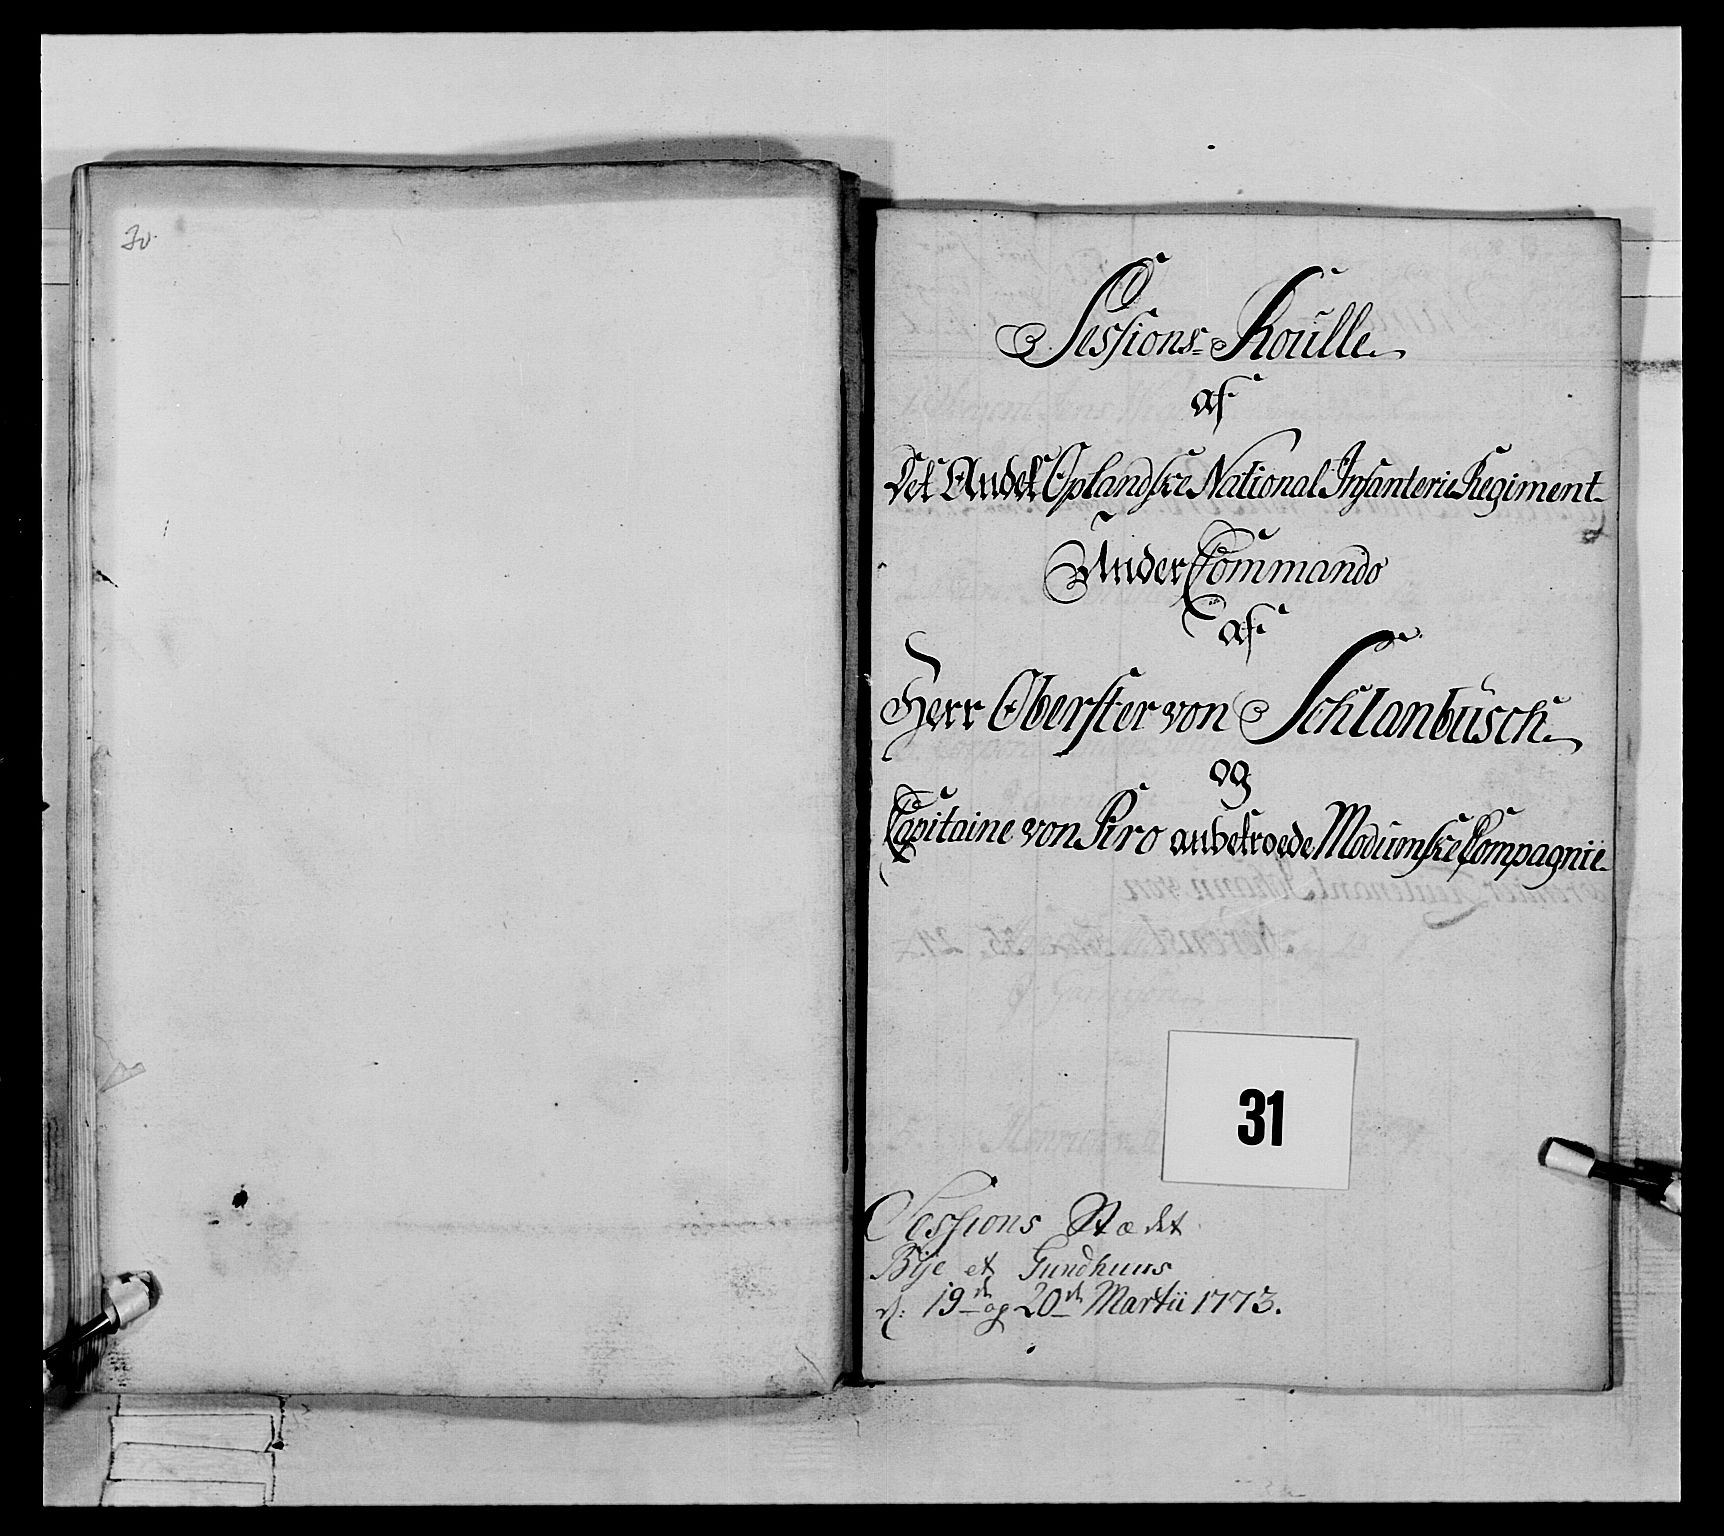 30.
Sessions-Roulle
af
Det Andet Oplandske National Infanterie Regiment
Under Commando
af
Herr Oberster von Schlanbusch
og
Capitaine von Kro anbetroede Modumske Compagnie
31
Sessions Stædet
Bye et Gundhuus
d: 19de og 20de Martii 1773.